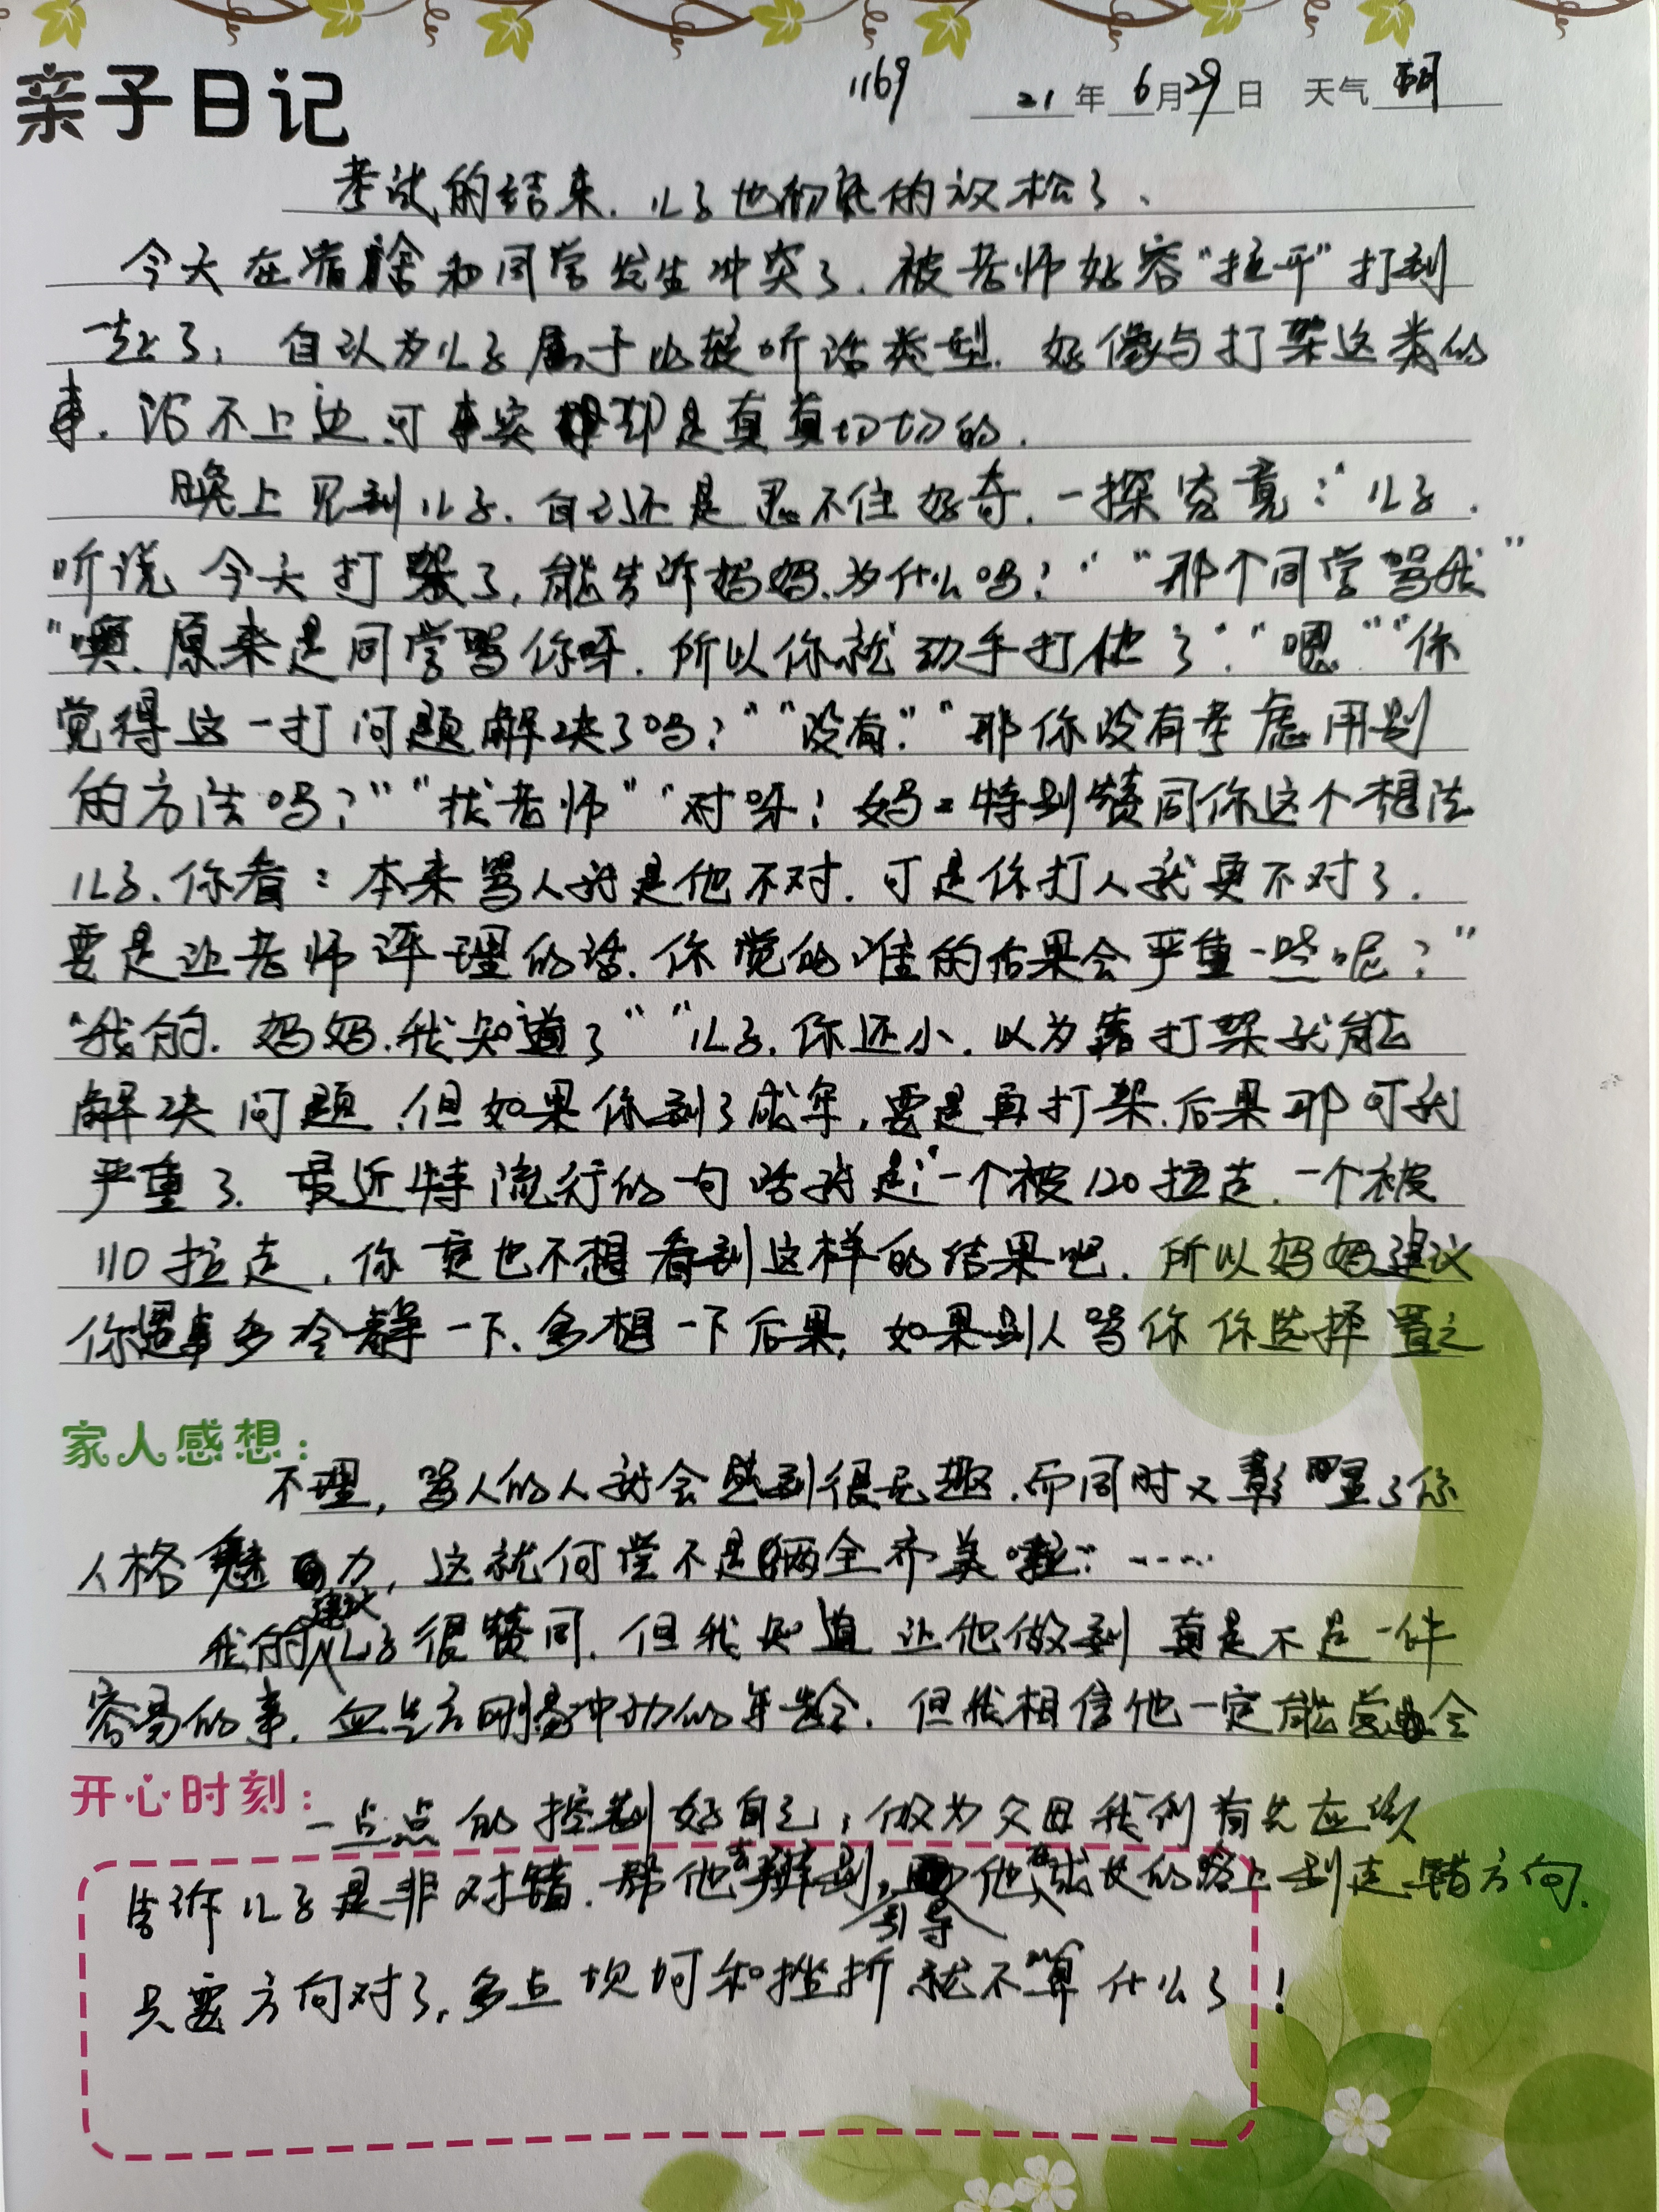 亲子日记
1169 21年6月29日 天气 晴
考试的结束，儿子也彻底的放松了、
今天在宿舍和同学发生冲突了，被老师形容"拉平"打到
一起了，自认为儿子属于比较听话类型，好像与打架这类的
事，沾不上边，可事实却是真真切切的，
晚上见到儿子，自己还是忍不住好奇，一探究竟："儿子，
听说今天打架了，能告诉妈妈，为什么吗？""那个同学骂我"
"噢，原来是同学骂你呀，所以你就动手打他了""嗯""你
觉得这一打问题解决了吗？""没有""那你没有考虑用别
的方法吗？""找老师""对呀！妈=特别赞同你这个想法
儿子，你看：本来骂人就是他不对，可是你打人就更不对了，
要是让老师评理的话，你觉的谁的后果会严重一些呢？"
"我的，妈妈，我知道了""儿子，你还小，以为靠打架就能
解决问题，但如果你到了成年，要是再打架，后果那可就
严重了，最近特流行的一句话就是："一个被120拉走，一个被
110拉走，你定也不想看到这样的结果吧，所以妈妈建议
你遇事多冷静一下、多想一下后果，如果别人骂你你选择置之
家人感想：
不理，骂人的人就会感到很无趣，而同时又彰显了你
人格魅力，这就何尝不是俩全齐美啦"……
我的建议儿子很赞同，但我知道让他做到真是不是一件
容易的事，血气方刚易冲动的年龄，但我相信他一定能学会
开心时刻：
一点点的控制好自己，做为父母我们首先应该
告诉儿子是非对错，帮他去辨别，引导他在成长的路上别走错方向，
只要方向对了，多点坎坷和挫折就不算什么了！